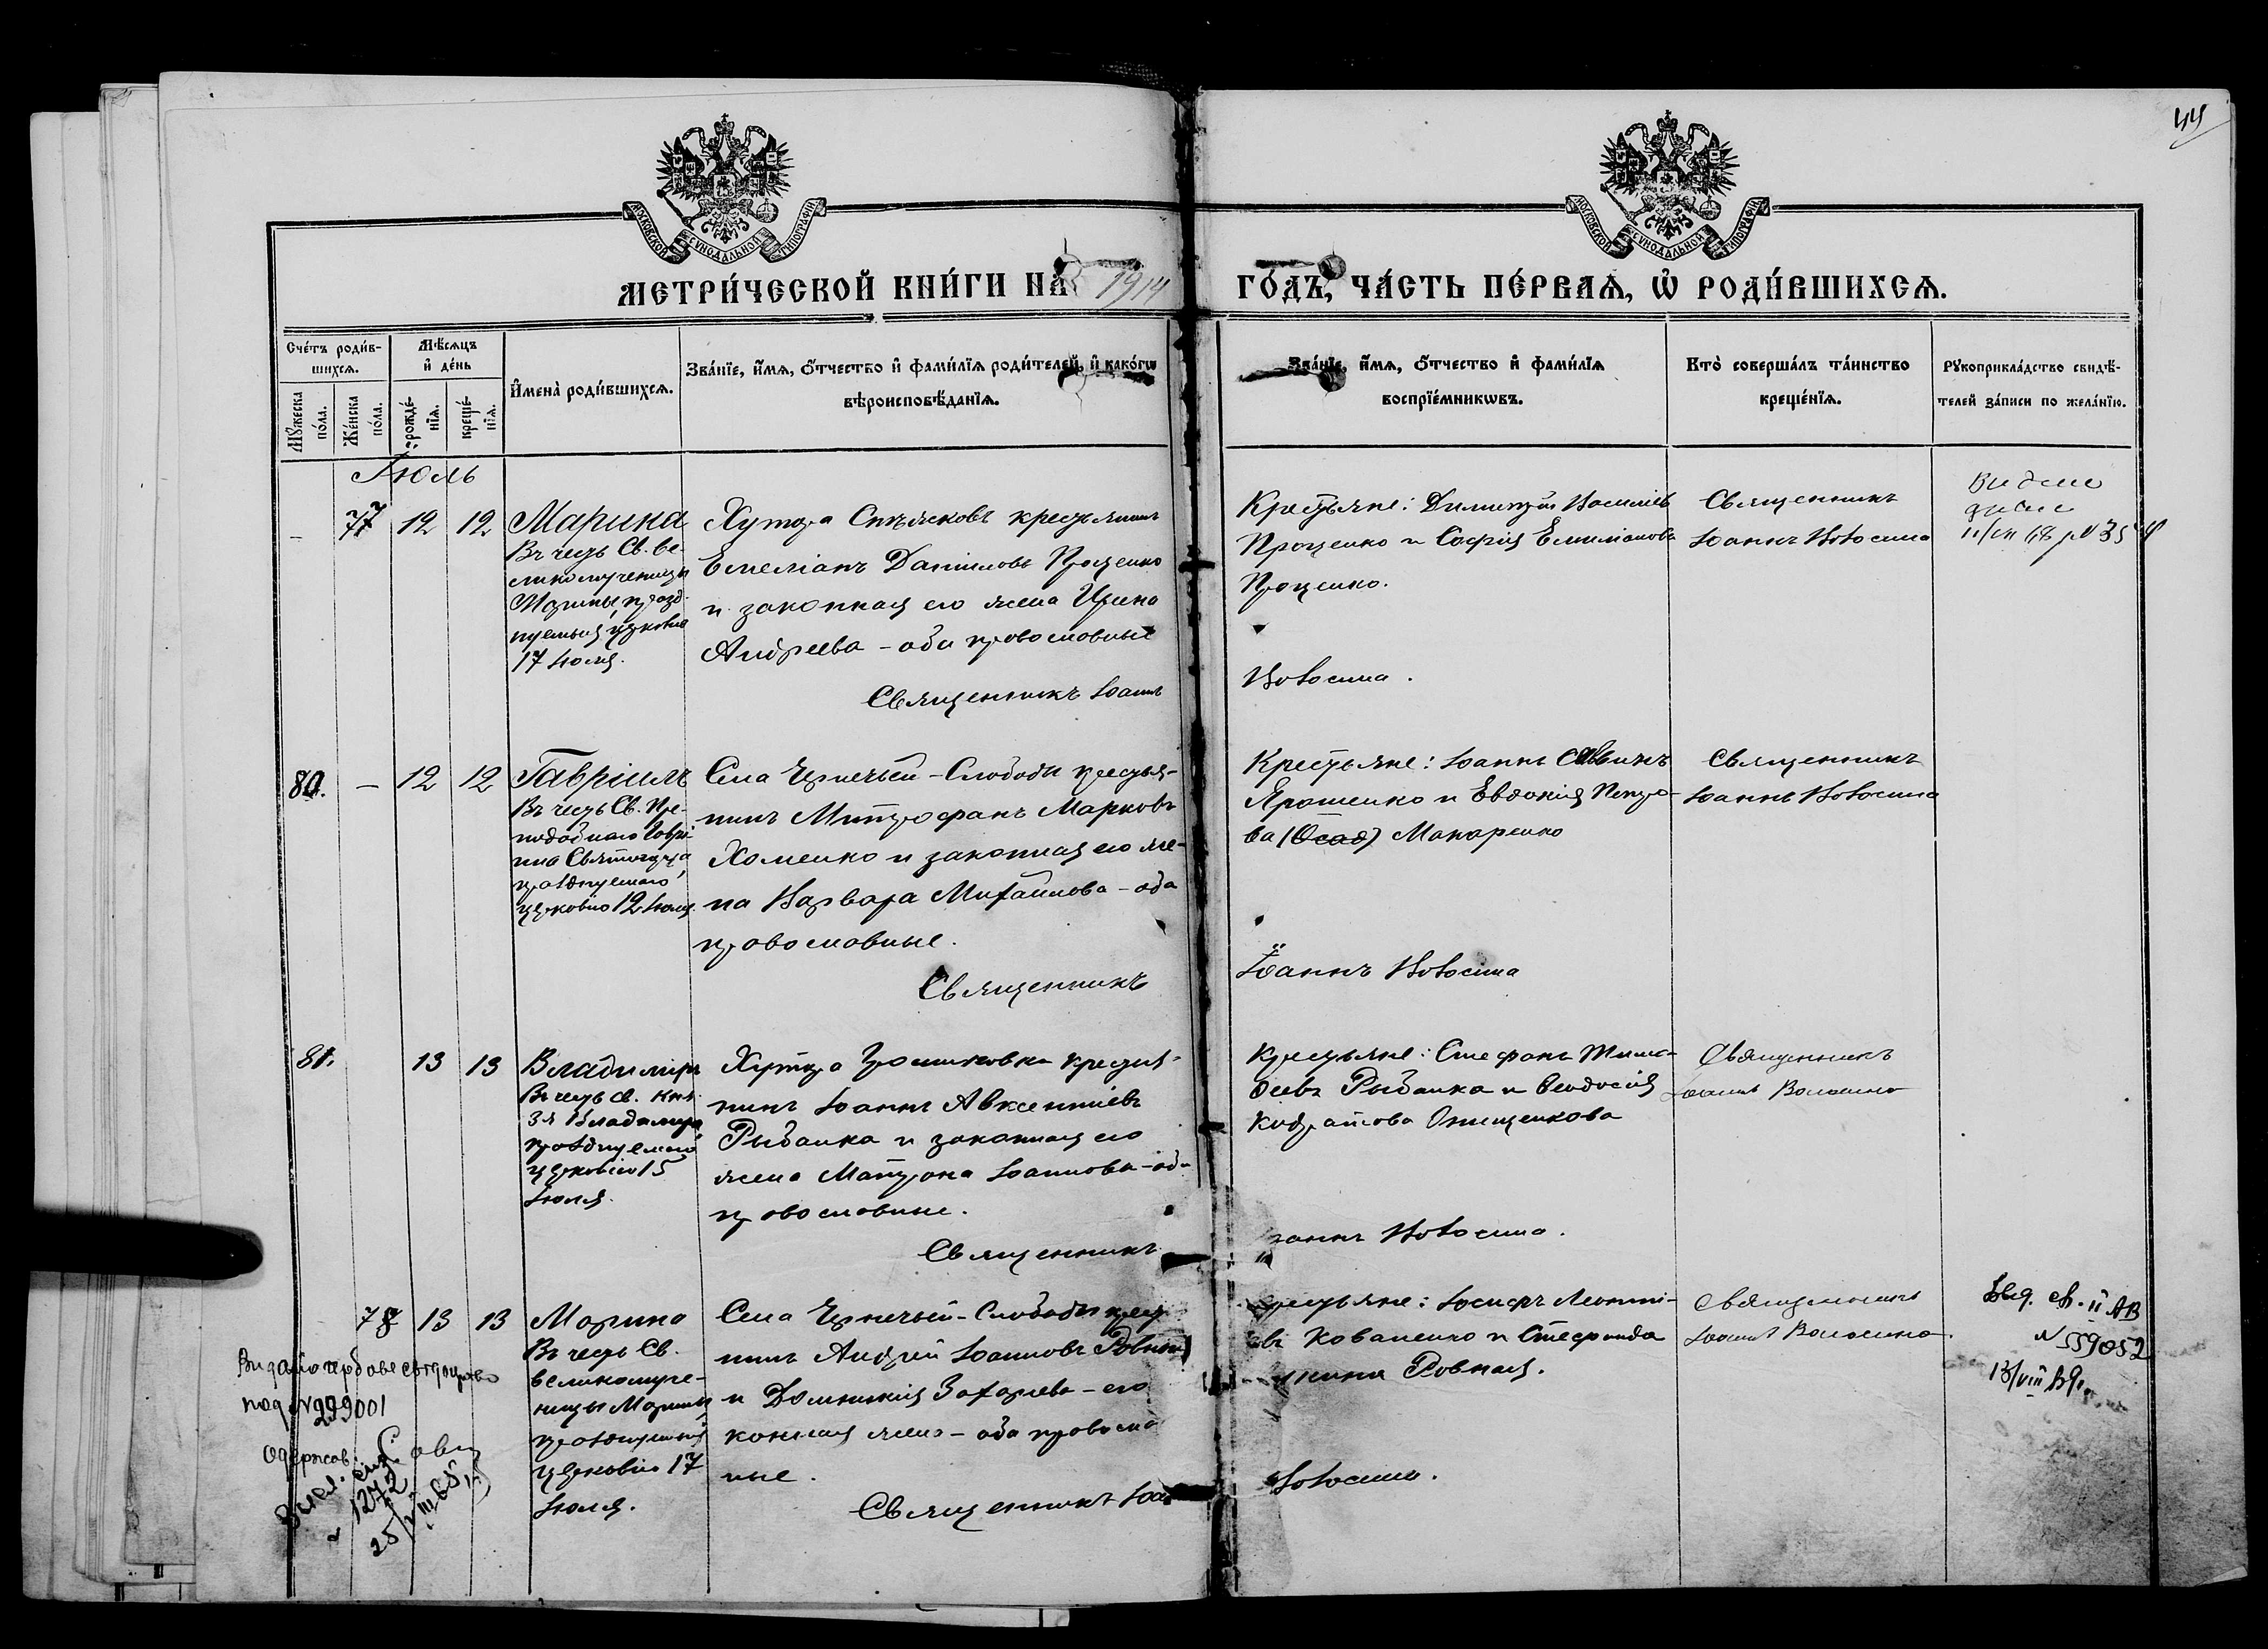 44
МОСКОВСКОЙ СѴНОДАЛЬНОЙ ТИПОГРАФІИ
МОСКОВСКОЙ СѴНОДАЛЬНОЙ ТИПОГРАФІИ
МЕТРИ́ЧЕСКОЙ КНИ́ГИ НА 1914 ГО́ДЪ, ЧА́СТЬ ПЕ́РВАЯ, Ѡ҆ РОДИ́ВШИХСЯ.
Сче́тъ роди́в-
шихся.
Мѣ́сяцъ
и҆ де́нь
Мꙋ́жеска по́ла.
Же́нска по́ла.
рожде́-
нїя.
креще́-
нїя.
И҆мена̀ роди́вшихся.
Зва́нїе, и҆́мя, ѻ҆́тчество и҆ фами́лїя роди́телей, и҆ како́гѡ
вѣроисповѣ́данїя.
Зва́нїе, и҆́мя, ѻ҆́тчество и҆ фами́лїя
воспрїе́мникѡвъ.
Кто̀ соверша́лъ та́инство
креще́нїя.
Рꙋкоприкла́дство свидѣ́-
телей за́писи по жела́нїю.
Іюль
– 77 12 12
Марина
Въ честь Св. ве-
ликомученицы
Марины, празд-
нуемыя церковію
17 Іюля.
Хутора крестьянинъ
Емеліанъ Даніиловъ Проценко
и законная его жена Ирина
Андреева – оба православные
Священникъ Іоаннъ
Крестьяне: Димитрій Василіевъ
Проценко и Софія Емиліанова
Проценко.
Волосина.
Священникъ
Іоаннъ Волосина
80. – 12 12
Гавріилъ
Въ честь Св. Пре-
подобнаго Гаврі-
ила Святогорца,
празднуемаго
церковію 12 Іюля.
Села Чернечьей-Слободы крестья-
нинъ Митрофанъ Марковъ
Хоменко и законная его же-
на Варвара Михаилова – оба
православные.
Священникъ
Крестьяне: Іоаннъ Саввинъ
Ярошенко и Евдокія Петро-
ва Макаренко
Іоаннъ Волосина
Священникъ
Іоаннъ Волосина
81. 13 13
Владиміръ
Въ честь Св. Кня-
зя Владиміра,
празднуемаго
церковію 15
Іюля.
Хутора крестья-
нинъ Іоаннъ Авксентіевъ
Рыбалка и законная его
жена Матрона Іоаннова – оба
православные.
Священникъ
Крестьяне: Стефанъ Тимо-
феевъ Рыбалка и Феодосія
Кодратова Онищенкова
Іоаннъ Волосина.
Священникъ
Іоаннъ Волосина
78 13 13
Марина
Въ честь Св.
великомуче-
ницы Марины,
празднуемыя
церковію 17
Іюля.
Села Чернечьей-Слободы крестья
нинъ Андрей Іоанновъ Ровный
и Домникія Захаріева – его
конная жена – оба правосла
ные.
Священникъ Іоан
Крестьяне: Іосифъ Леонті-
евъ Коваленко и Стефанида
Ровная.
Волосина.
Священникъ
Іоаннъ Волосина.
II АВ
№ 559052
13/VIII
Видано свідоцтво
под № 299001
Одержав
1272
25/VIII 65